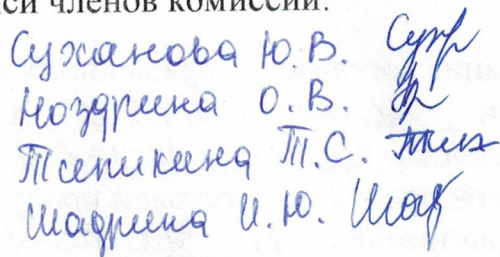 си членов комиссии:
Суханова Ю. В.
Ноздрина О. В.
Типикина Т. С.
Шадрина И. Ю.